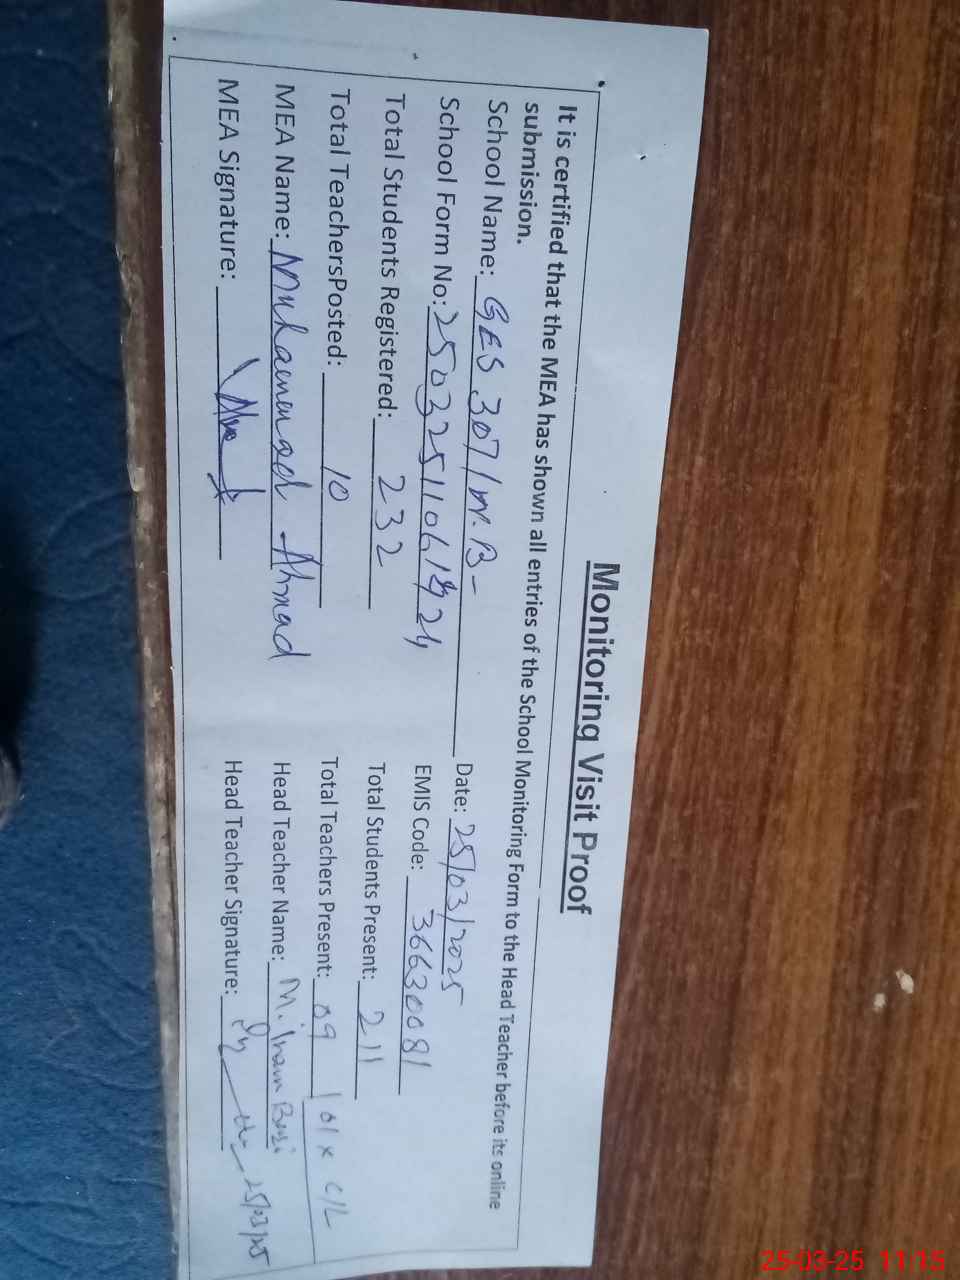 Monitoring Visit Proof
It is certified that the MEA has shown all entries of the School Monitoring Form to the Head Teacher before its online
submission.
School Name: GES 307/W.B- Date: 25/03/2025
School Form No: EMIS Code: 36630081
Total Students Registered: 232 Total Students Present: 211
Total TeachersPosted: 10 Total Teachers Present: 09 / 01 x C/L
MEA Name: Muhammad Ahmad Head Teacher Name: M.
MEA Signature: Head Teacher Signature: 25/03/25
25-03-25 11:15